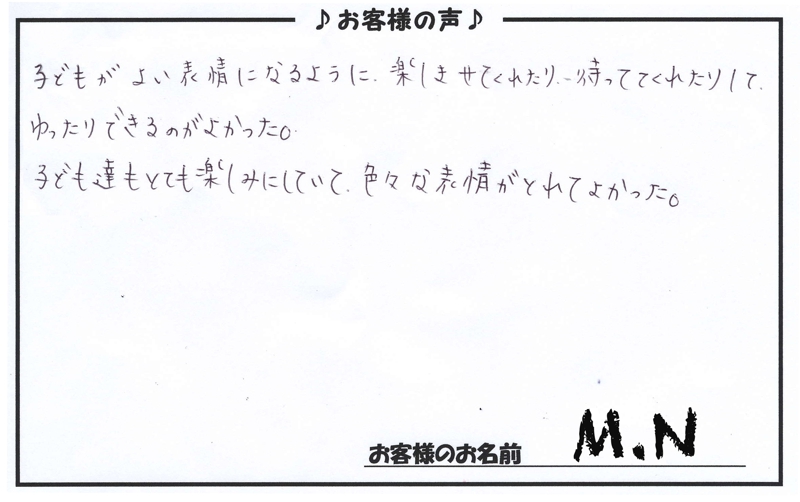 ♪お客様の声♪
子どもがよい表情になるように、楽しませてくれたり、待っててくれたりして、
ゆったりできるのがよかった。
子ども達もとても楽しみにしていて、色々な表情がとれてよかった。
お客様のお名前 M.N